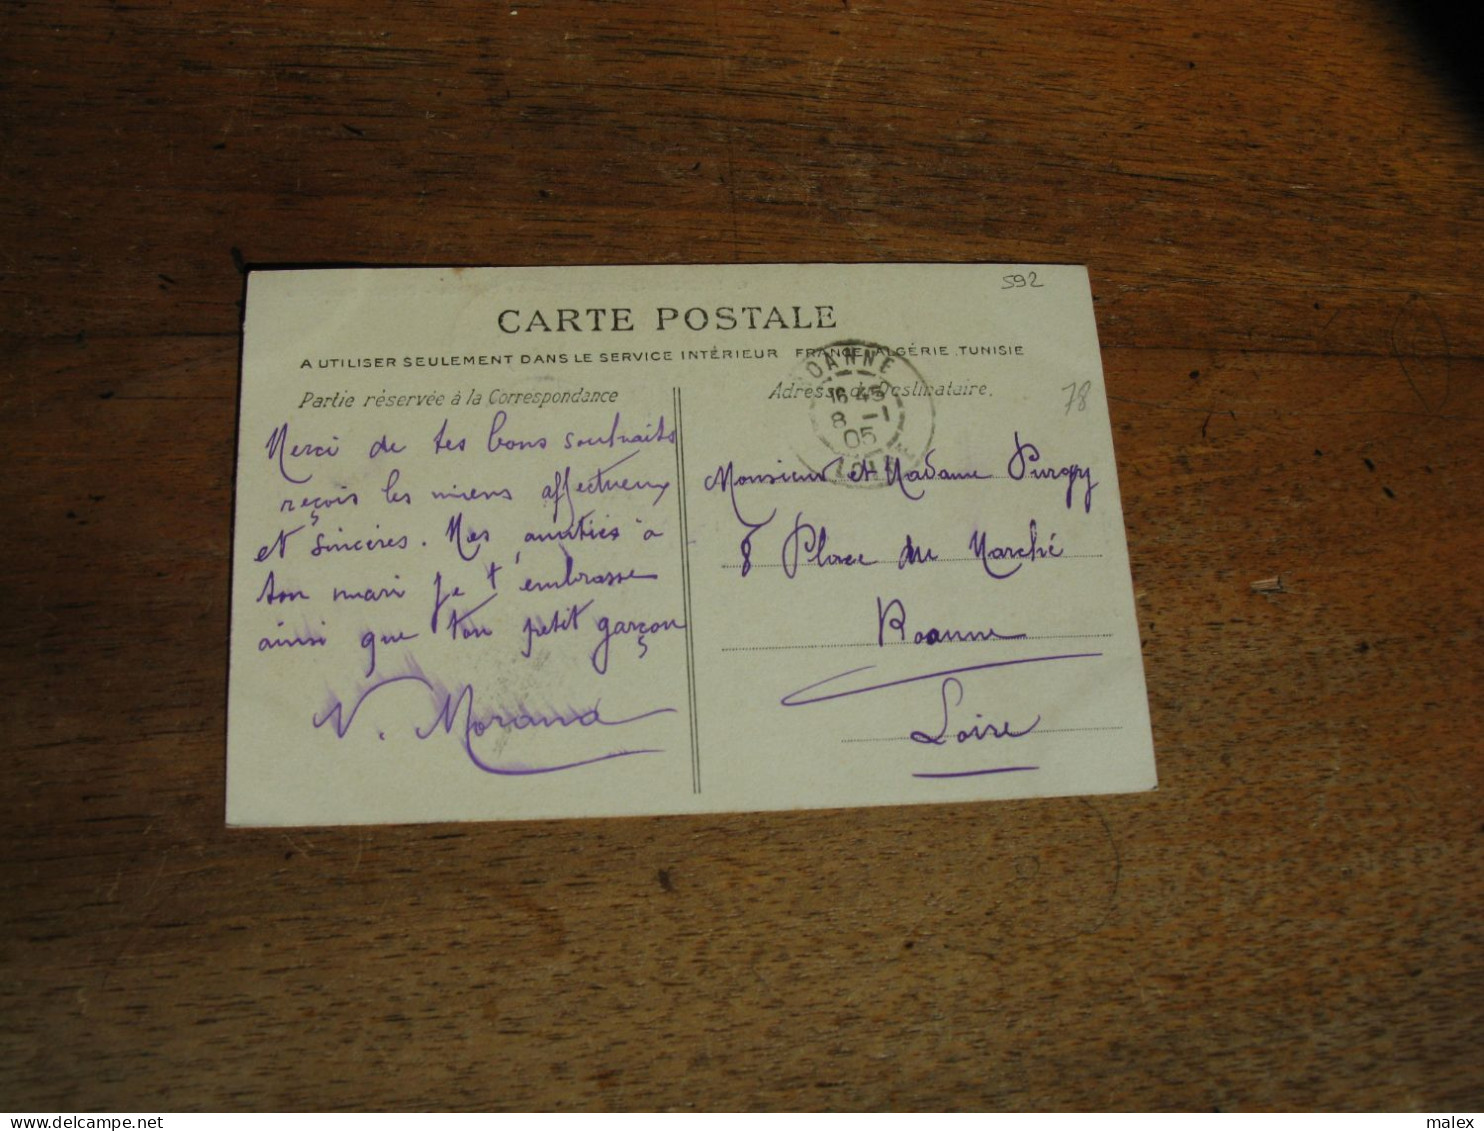 592
CARTE POSTALE
A UTILISER SEULEMENT DANS LE SERVICE INTÉRIEUR FRANCE, ALGÉRIE, TUNISIE
Partie réservée à la Correspondance
Adresse du Destinataire.
78
OANNE
16 45
8 -1
05
Merci de tes bons souhaits
reçois les miens affectueux
et sincères. Mes amitiés à
ton mari je t'embrasse
ainsi que ton petit garçon
V. Morand
Monsieur et Madame Purgy
8 Place du Marché
Roanne
Loire
malex